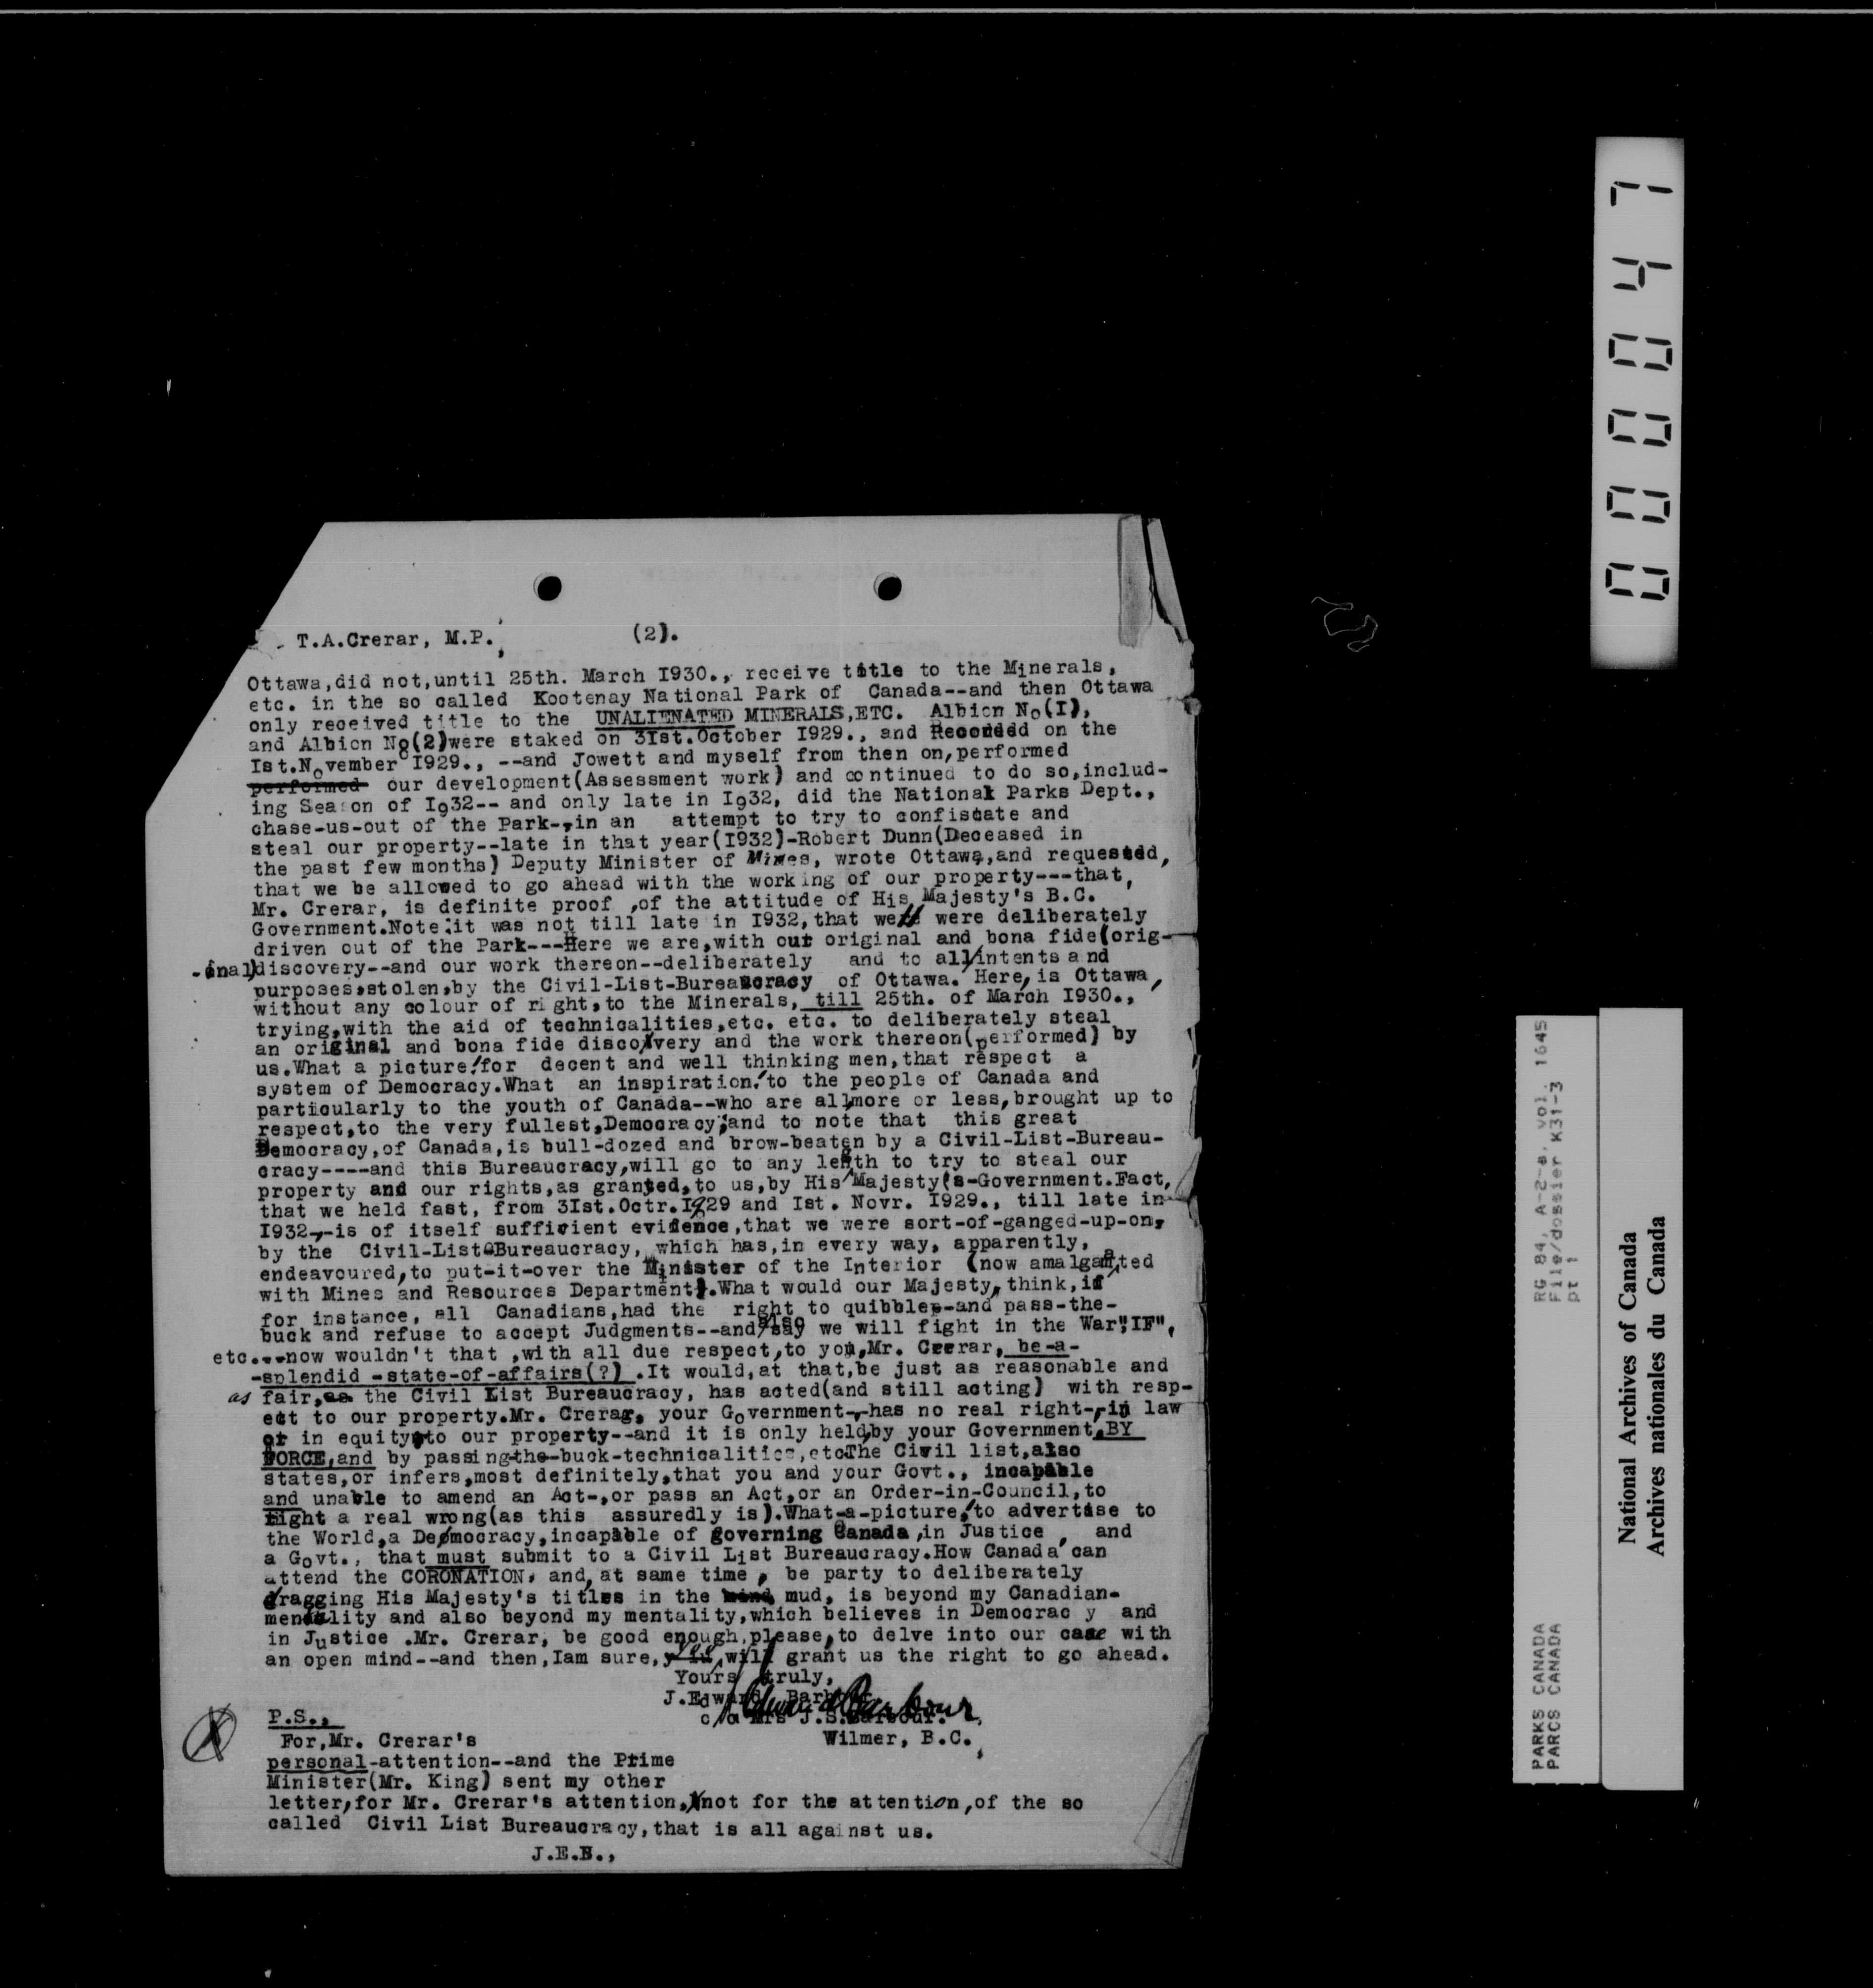 T.A.Crerar, M.P., (2).
Ottawa,did not,until 25th. March I930., receive title to the Minerals,
etc. in the so called Kootenay National Park of Canada--and then Ottawa
only received title to the UNALIENATED MINERALS,ETC. Albion No(I),
and Albion No(2)were staked on 3Ist.October I929., and Recorded on the
Ist.November I929., --and Jowett and myself from then on,performed
performed our development(Assessment work) and continued to do so,includ-
ing Season of I932-- and only late in I932, did the National Parks Dept.,
chase-us-out of the Park-,in an attempt to try to confiscate and
steal our property--late in that year(I932)-Robert Dunn(Deceased in
the past few months) Deputy Minister of Mines, wrote Ottawa,and requested,
that we be allowed to go ahead with the working of our property---that,
Mr. Crerar, is definite proof ,of the attitude of His Majesty's B.C.
Government.Note:it was not till late in I932,that we were deliberately
driven out of the Park---Here we are,with our original and bona fide(orig-
-inal)discovery--and our work thereon--deliberately and to all intents and
purposes,stolen,by the Civil-List-Bureaucracy of Ottawa. Here, is Ottawa,
without any colour of right,to the Minerals, till 25th. of March I930.,
trying,with the aid of technicalities,etc. etc. to deliberately steal
an original and bona fide discovery and the work thereon(performed) by
us.What a picture!for decent and well thinking men,that respect a
system of Democracy.What an inspiration!to the people of Canada and
particularly to the youth of Canada--who are all,more or less,brought up to
respect,to the very fullest,Democracy;and to note that this great
Democracy,of Canada,is bull-dozed and brow-beaten by a Civil-List-Bureau-
cracy----and this Bureaucracy,will go to any length to try to steal our
property and our rights,as granted,to us,by His Majesty's-Government.Fact,
that we held fast, from 3Ist.Octr.I929 and Ist. Novr. I929., till late in
I932,-is of itself suffivient evidence,that we were sort-of-ganged-up-on,
by the Civil-List-Bureaucracy, which has,in every way, apparently,
endeavoured,to put-it-over the Minister of the Interior (now amalgamated
with Mines and Resources Department).What would our Majesty, think,if
for instance, all Canadians,had the right to quibble--and pass-the-
buck and refuse to accept Judgments--and also say we will fight in the War",IF",
etc.--now wouldn't that ,with all due respect,to you,Mr. Crerar, be-a-
-splendid -state-of-affairs(?) .It would,at that,be just as reasonable and
as fair,as the Civil List Bureaucracy, has acted(and still acting) with resp-
ect to our property.Mr. Crerar, your Government-,-has no real right-,in law
or in equity,to our property--and it is only held,by your Government,BY
FORCE,and by passing-the-buck-technicalities,etc.The Civil list,also
states,or infers,most definitely,that you and your Govt., incapable
and unable to amend an Act-,or pass an Act,or an Order-in-Council,to
right a real wrong(as this assuredly is).What-a-picture,!to advertise to
the World,a Democracy,incapable of governing Canada,in Justice , and
a Govt., that must submit to a Civil List Bureaucracy.How Canada can
attend the CORONATION, and,at same time , be party to deliberately
dragging His Majesty's titles in the mud, is beyond my Canadian-
mentality and also beyond my mentality,which believes in Democrac y and
in Justice .Mr. Crerar, be good enough,please,to delve into our case with
an open mind--and then,Iam sure,you will grant us the right to go ahead.
Yours truly,
J.Edward Barbour
J. Edward Barbour
c/o Mrs J.S.Barbour.
Wilmer, B.C.,
P.S.,
For,Mr. Crerar's
personal-attention--and the Prime
Minister(Mr. King) sent my other
letter,for Mr. Crerar's attention, not for the attention,of the so
called Civil List Bureaucracy,that is all against us.
J.E.B.,
PARKS CANADA RG 84, A-2-a, vol. 1645
PARCS CANADA File/dossier K31-3
pt 1
National Archives of Canada
Archives nationales du Canada